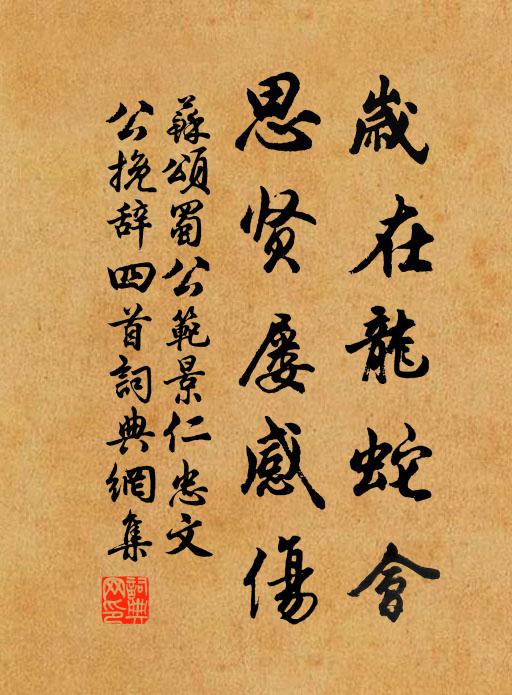 歲在龍蛇會
思贤屡感傷
蘇頌蜀公範景仁忠文
公挽辞四首詞典網集
詞典
网印